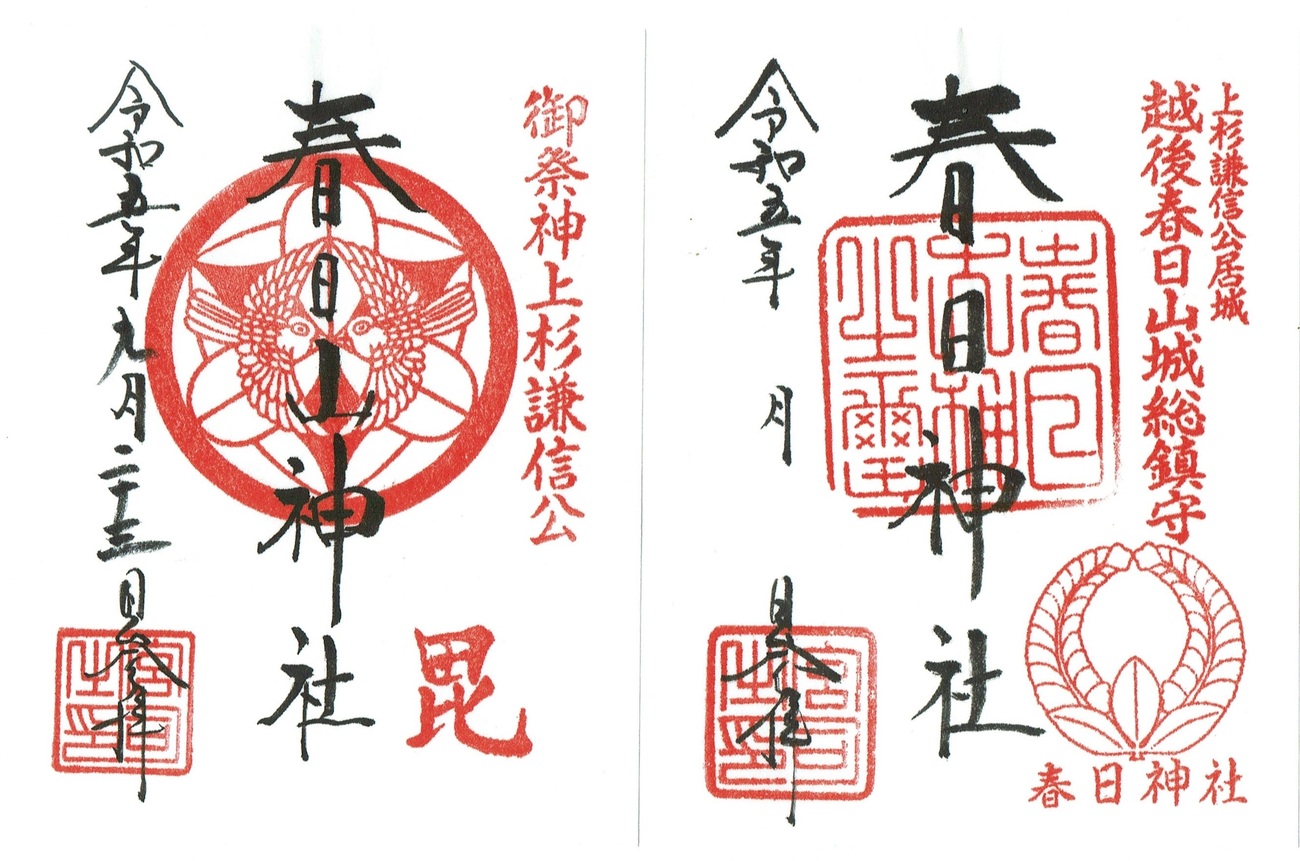 上杉謙信公居城
越後春日山城総鎮守
春日神社
春日神社
令和五年 月 日参拝
御祭神上杉謙信公
毘
春日山神社
令和五年九月二十三日参拝